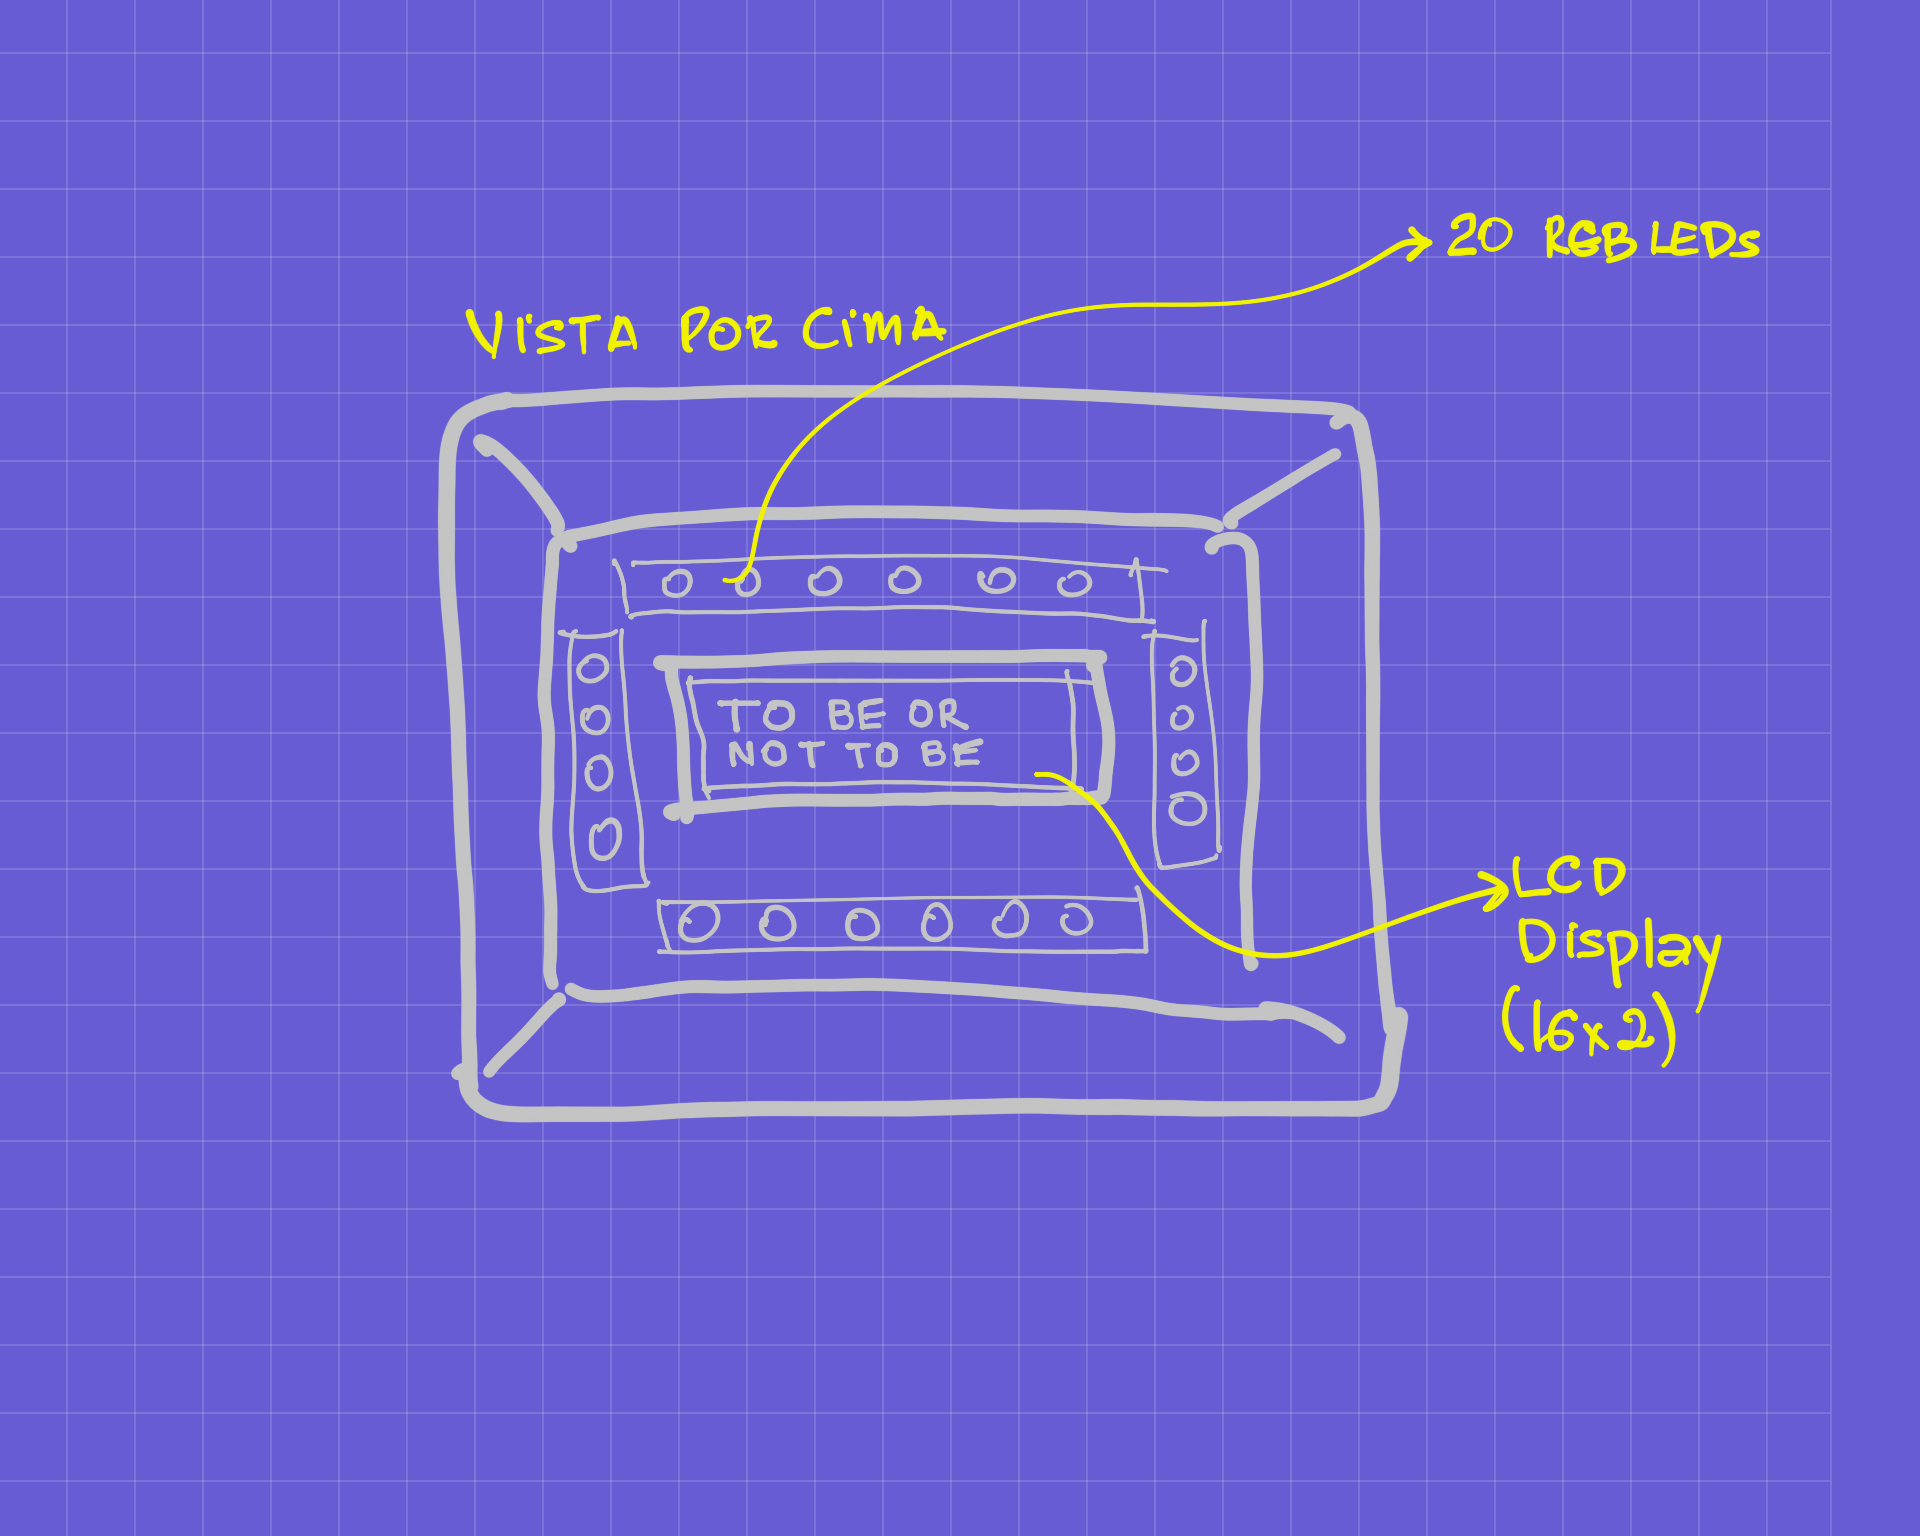 20 RGB LEDs
VISTA POR CIMA
TO BE OR
NOT TO BE
LCD
Display
(16x2)